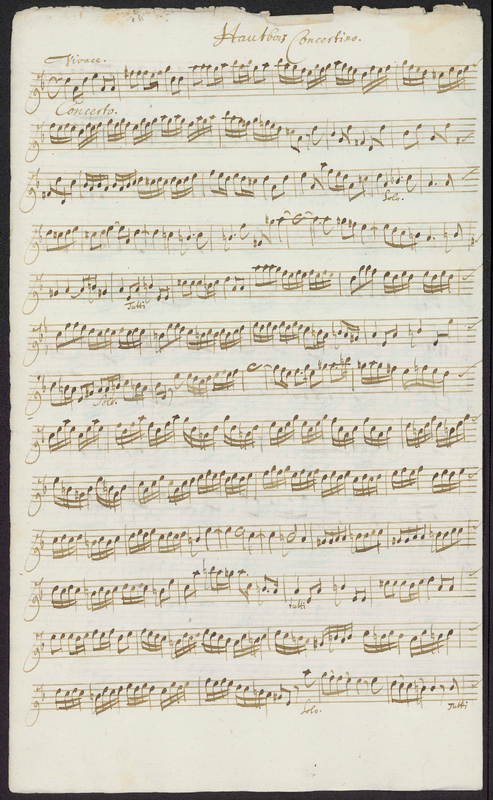 Hautbois Concertino.
Vivace.
Concerto.
Solo.
Tutti
Solo.
tutti
Solo. Tutti